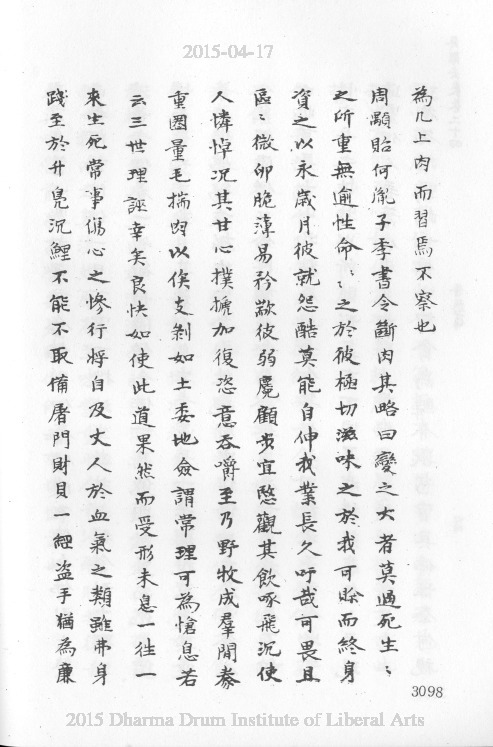 2015-04-17
為几上肉而習焉不察也
周顒貽何胤子季書令斷肉其略曰變之大者莫過死生〻
之所重無逾性命〻〻之於彼極切滋味之於我可賒而終身
資之以永歲月彼就怨酷莫能自伸我業長久吁哉可畏且
區〻微卵脆薄易矜歂彼弱麑顧步宜愍觀其飲啄飛沉使
人憐悼况其甘心撲搋加復恣意吞嚼至乃野牧成羣閉豢
重圈量毛揣肉以俟支剝如土委地僉謂常理可為愴息若
云三世理誣幸矣良快如使此道果然而受形未息一往一
來生死常事傷心之慘行將自及丈人於血氣之類雖弗身
踐至於升鳧沉鯉不能不取備屠門財貝一經盜手猶為廉
3098
2015 Dharma Drum Institute of Liberal Arts